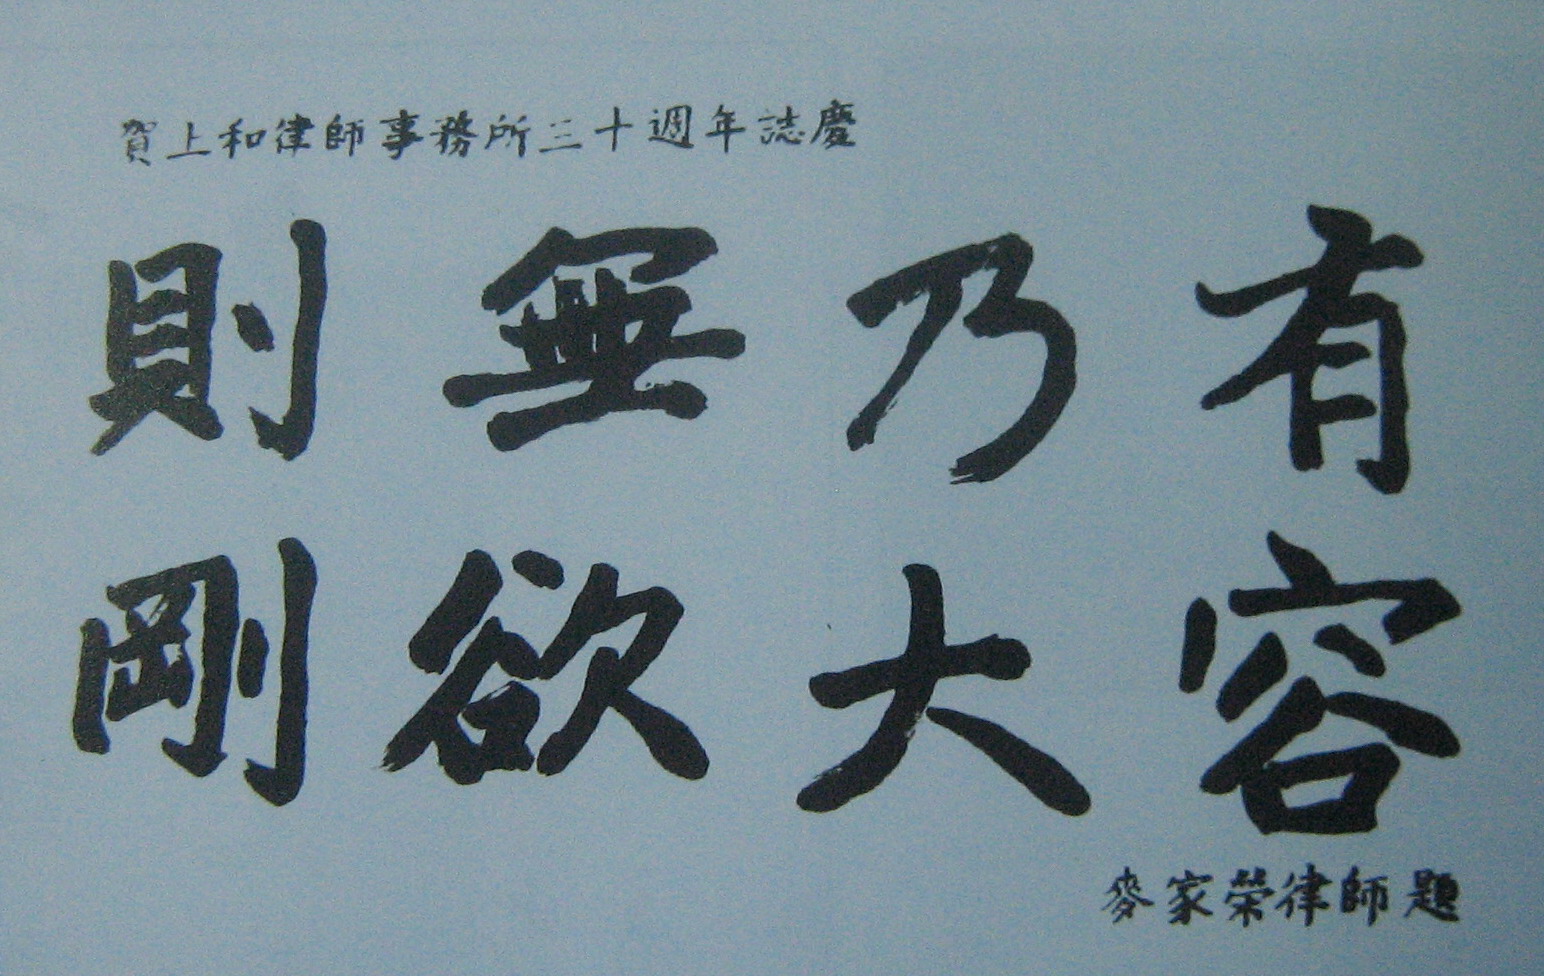 賀上和律師事務所三十週年誌慶
有容
乃大
無欲
則剛
麥家榮律師題